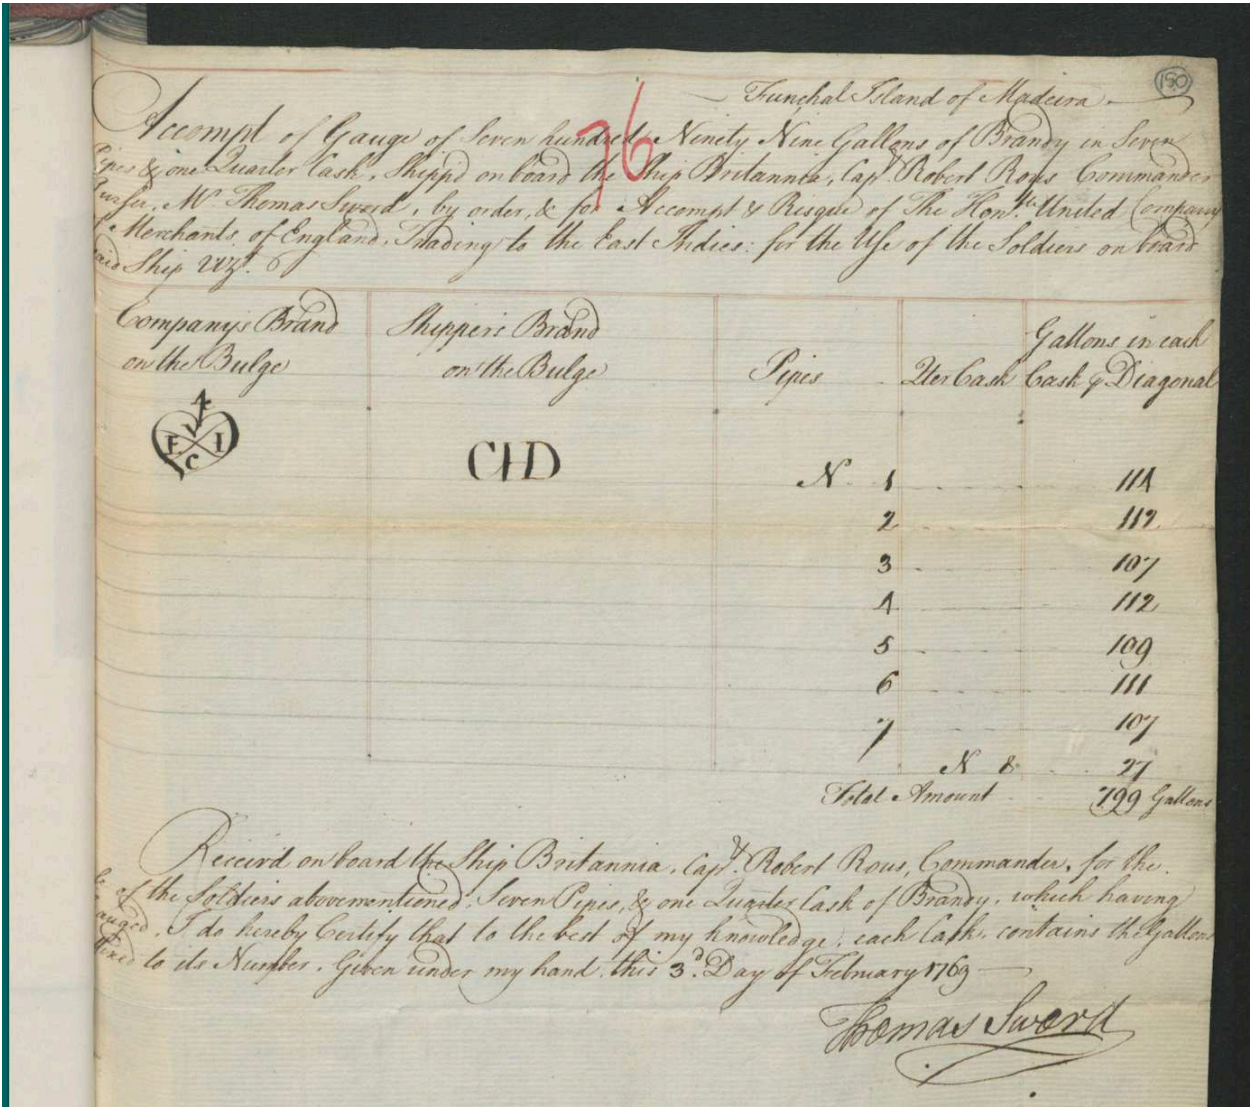 150
76
Funchal Island of Madeira
Accompt of Gauge of Seven hundred Ninety Nine Gallons of Brandy in Seven
Pipes & one Quarter Cask, Shipp'd on board the Ship Britannia, Capt. Robert Rous Commander
Purser, Mr. Thomas Sword, by order, & for Accompt & Risque of The Honble. United Company
of Merchants of England, Trading to the East Indies: for the Use of the Soldiers on board
said Ship Vizt.
Company's Brand on the Bulge
Shippers Brand on the Bulge
Pipes
Qter Cask
Gallons in each Cask p Diagonal
4
V E I C
CHD
N 1 114
2 112
3 107
4 112
5 109
6 111
7 107
N 8 27
Total Amount 799 Gallons
Receiv'd on board the Ship Britannia, Capt. Robert Rous, Commander, for the
of the Soldiers abovementioned, Seven Pipes, & one Quarter Cask of Brandy, which having
auged, I do hereby Certify that to the best of my knowledge, each Cask, contains the Gallons
to its Number. Given under my hand this 3d. Day of February 1769
Thomas Sword